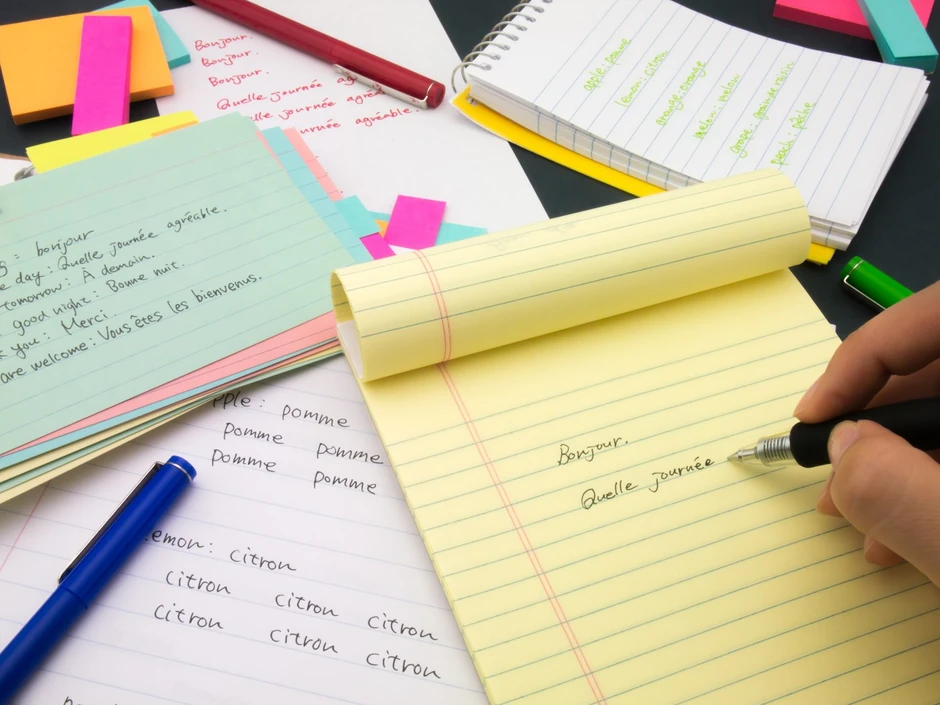 Bonjour.
Bonjour.
Bonjour.
Quelle journée
journée agréable.
apple: pomme
lemon: citron
orange: orange
melon: melon
grape: raisin
peach: pêche
: bonjour
e day: Quelle journée agréable.
tomorrow: À demain.
good night: Bonne nuit.
you: Merci.
are welcome: Vous êtes les bienvenus.
pple: pomme
pomme pomme
pomme pomme
emon: citron
citron citron citron
citron citron citron
Bonjour.
Quelle journée